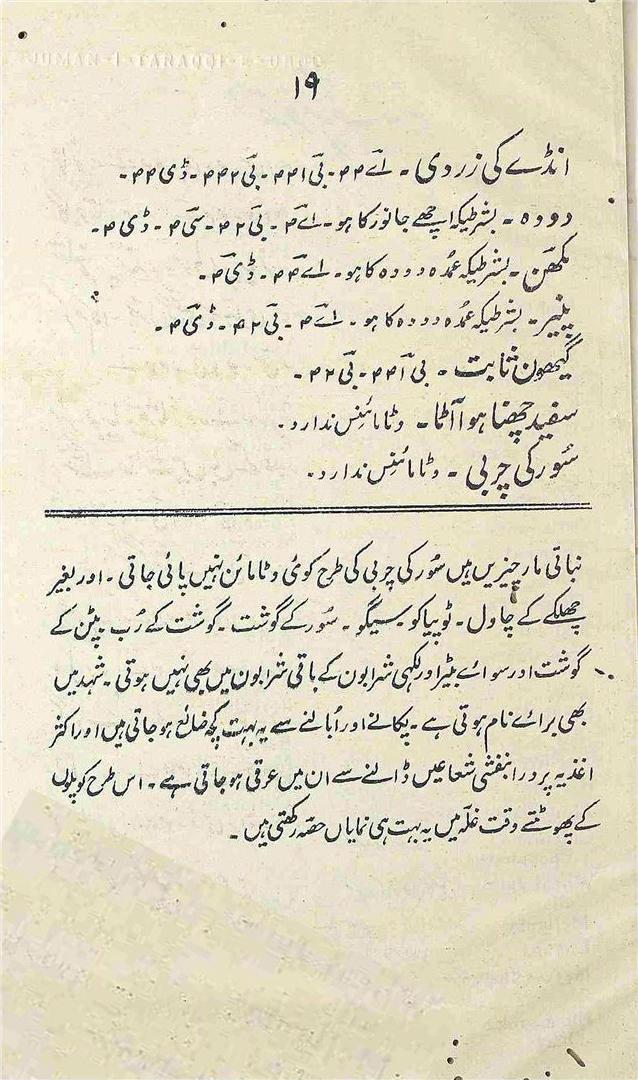 ۱۹
انڈے کی زردی - اے ۴۴ - بی ۴۴۱ - بی ۴۴۲ - ڈی ۴۴ -
دودہ - بشرطیکہ اچھے جانور کا ہو - اے ۴ - بی ۴۲ - سی ۴ - ڈی ۴ -
مکھن - بشرطیکہ عمدہ دودہ کا ہو - اے ۴۴ - ڈی ۴ -
پنیر - بشرطیکہ عمدہ دودہ کا ہو - اے ۴ - بی ۴۲ - ڈی ۴ -
گیھون ثابت - بی ۴۴۱ - بی ۴۲ -
سفید چھنا ہوا آٹا - وٹامائنس ندارد -
سُور کی چربی - وٹامائنس ندارد -
نباتی مارچیزیں میں سُور کی چربی کی طرح کوئی وٹامائن نہیں پائی جاتی - اور بغیر
چھلکے کے چاول - ٹوپیاکو - سیگو - سُور کے گوشت - گوشت کے رُب - پٹن کے
گوشت اور سوائے بیٹر اور لکھی شرابون کے باقی شرابون میں بھی نہیں ہوتی - شہد میں
بھی برائے نام ہوتی ہے - پکانے اور اُبالنے سے یہ بہت کچھ ضائع ہو جاتی ہیں اور اکثر
اغذیہ پر ورا بنفشی شعاعیں ڈالنے سے ان میں عرقی ہو جاتی ہے - اس طرح کوپلوں
کے پھوٹتے وقت غلہ میں یہ بہت ہی نمایاں حصہ رکھتی ہیں -